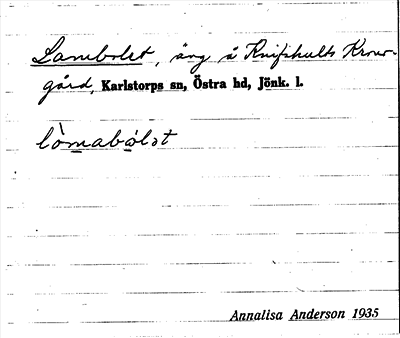 Lamebolet, äng å Knifshults Krono-
gård, Karlstorps sn, Östra hd, Jönk. l.
lòmabòlət
Annalisa Anderson 1935